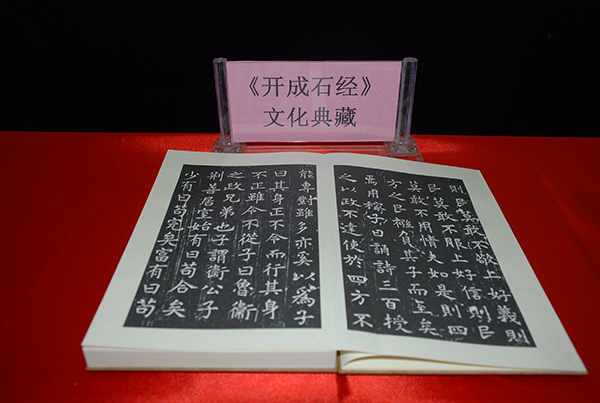 《开成石经》
文化典藏
則民莫敢不敬上好義則
民莫敢不服上好信則民
莫敢不用情夫如是則四
方之民襁負其子而至矣
焉用稼子曰誦詩三百授
之以政不達使於四方不
能專對雖多亦奚以爲子
曰其身正不令而行其身
不正雖令不從子曰魯衛
之政兄弟也子謂衛公子
荆善居室始有曰苟合矣
少有曰苟完矣富有曰苟